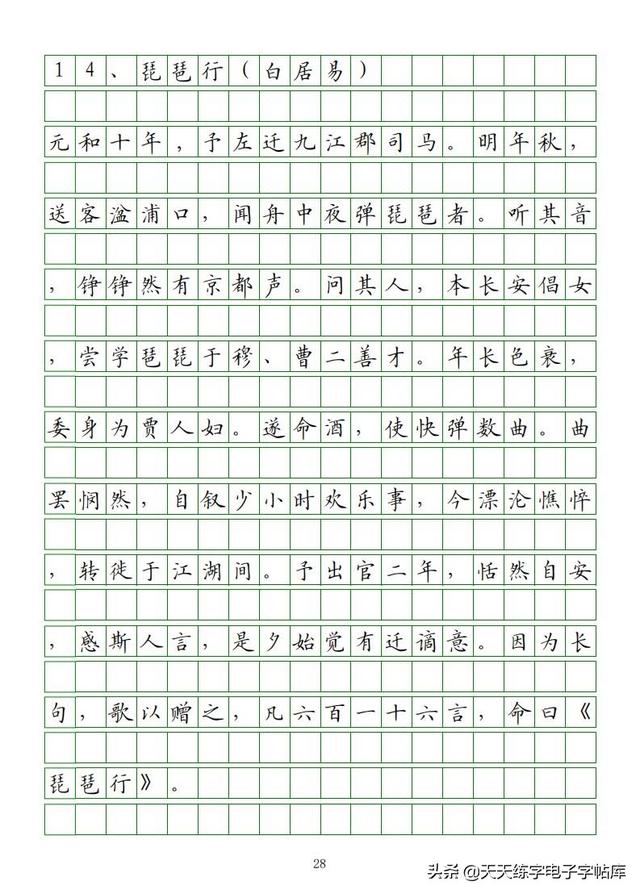 14、琵琶行（白居易）
元和十年，予左迁九江郡司马。明年秋，
送客湓浦口，闻舟中夜弹琵琶者。听其音
，铮铮然有京都声。问其人，本长安倡女
，尝学琵琶于穆、曹二善才。年长色衰，
委身为贾人妇。遂命酒，使快弹数曲。曲
罢悯然，自叙少小时欢乐事，今漂沦憔悴
，转徙于江湖间。予出官二年，恬然自安
，感斯人言，是夕始觉有迁谪意。因为长
句，歌以赠之，凡六百一十六言，命曰《
琵琶行》。
28
头条 @天天练字电子字帖库